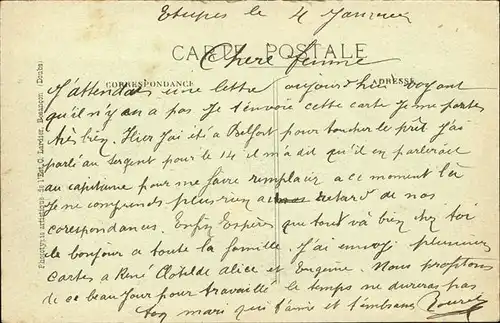 Etupes le 4 Janvier
CARTE POSTALE
Chere femme
CORRESPONDANCE
ADRESSE
J'attendais une lettre aujourd'hui voyant
qu'il n'y en a pas Je t'envoie cette carte Je me portes
très bien. Hier J'ai été a Belfort pour toucher le prêt J'ai
parlé au sergent pour le 14 il m'a dit qu'il en parlerait
au capitaine pour me faire remplacer a ce moment là
Je ne comprends plus rien a retard de nos
corespondances. Enfin Espérons que tout và bien chez toi
le bonjour a toute la famille. J'ai envoyé plusieurs
cartes a René Clotilde alice et Eugène. Nous profitons
de ce beau Jour pour travaillé le temps ne durera pas
ton mari qui t'aime et t'embrasse
Phototypie artistique de l'Edit. C. Lardier, Besançon (Doubs)